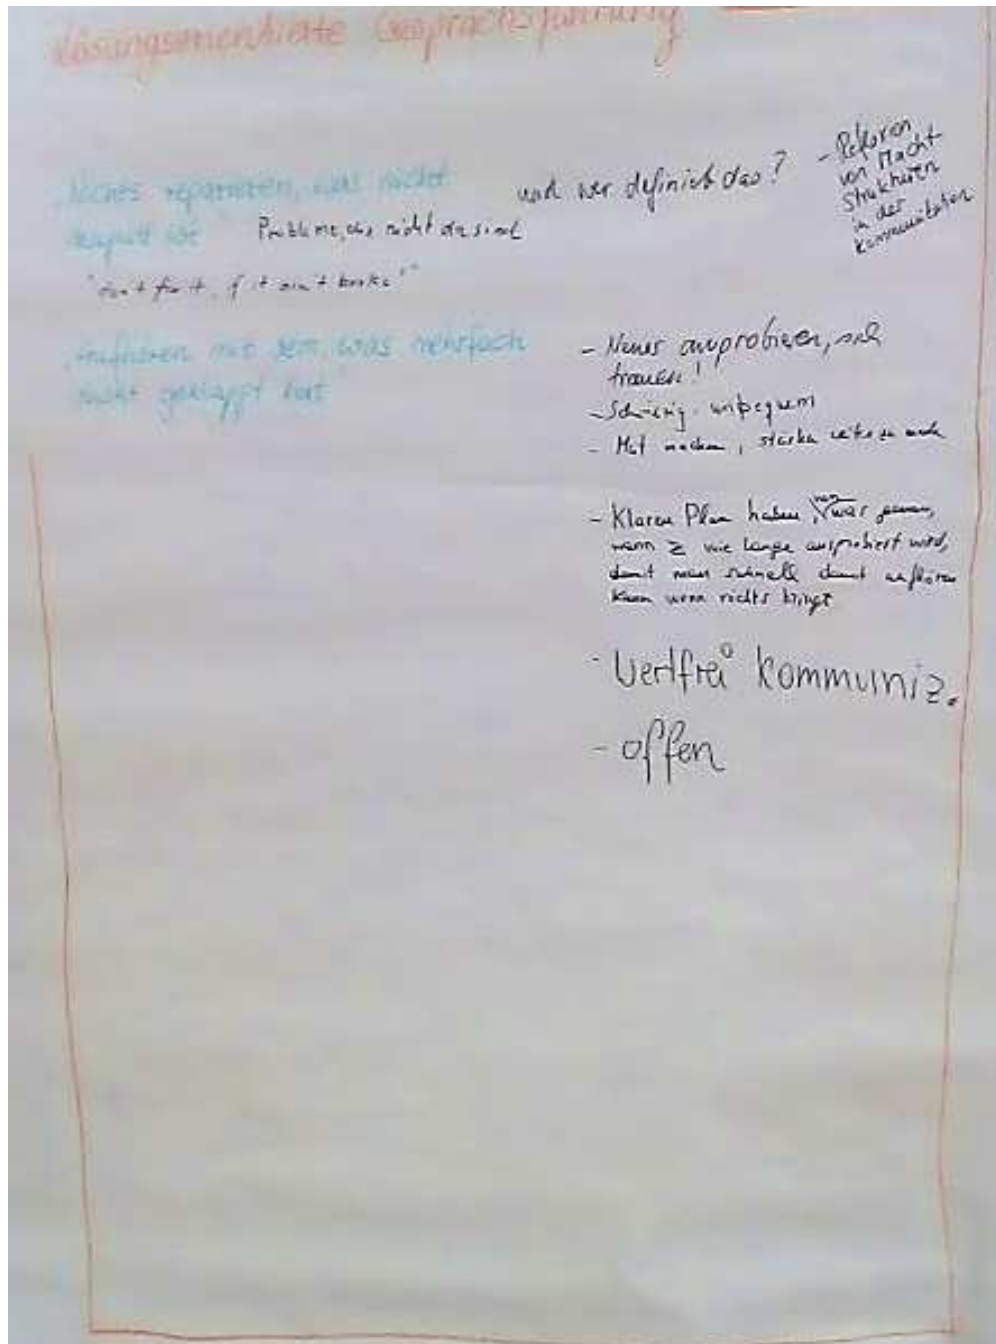 Lösungsorientierte Gesprächsführung
„Nichts reparieren, was nicht
kaputt ist"
Probleme, die nicht da sind
und wer definiert das?
von Macht
strukturen
in der
"don't fix it, if it ain't broke"
„Aufhören mit dem, was mehrfach
nicht geklappt hat"
- Neues ausprobieren, sich
trauen!
- Schwierig - unbequem
- Mut machen,
- Klaren Plan haben, was genau,
wann & wie lange ausprobiert wird,
damit man schnell damit aufhören
kann wenn nichts bringt
- Wertfrei kommuniz.
- offen